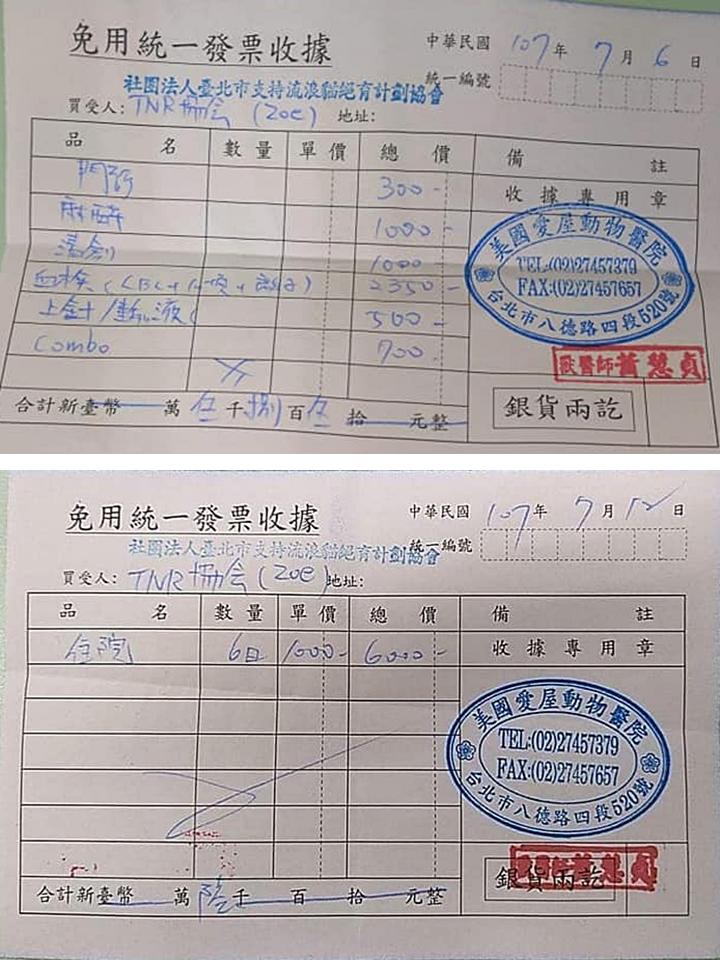 免用統一發票收據
中華民國 107年 7月 6日
統一編號
社團法人臺北市支持流浪貓絕育計劃協會
買受人: TNR協會 (Zoe) 地址:
品名 數量 單價 總價 備註
收據專用章
門診 300-
麻醉 1000-
清創 1000-
血檢 (CBC+ 2350-
上針/輸液 500-
Combo 700-
美國愛屋動物醫院
TEL:(02)27457379
FAX:(02)27457657
台北市八德路四段520號
獸醫師蕭慧貞
合計新臺幣 萬 伍千捌百伍拾 元整
銀貨兩訖
免用統一發票收據
中華民國 107年 7月 12日
統一編號
社團法人臺北市支持流浪貓絕育計劃協會
買受人: TNR協會 (Zoe) 地址:
品名 數量 單價 總價 備註
住院 6日 1000- 6000- 收據專用章
美國愛屋動物醫院
TEL:(02)27457379
FAX:(02)27457657
台北市八德路四段520號
獸醫師蕭慧貞
合計新臺幣 萬 陸千 百 拾 元整
銀貨兩訖